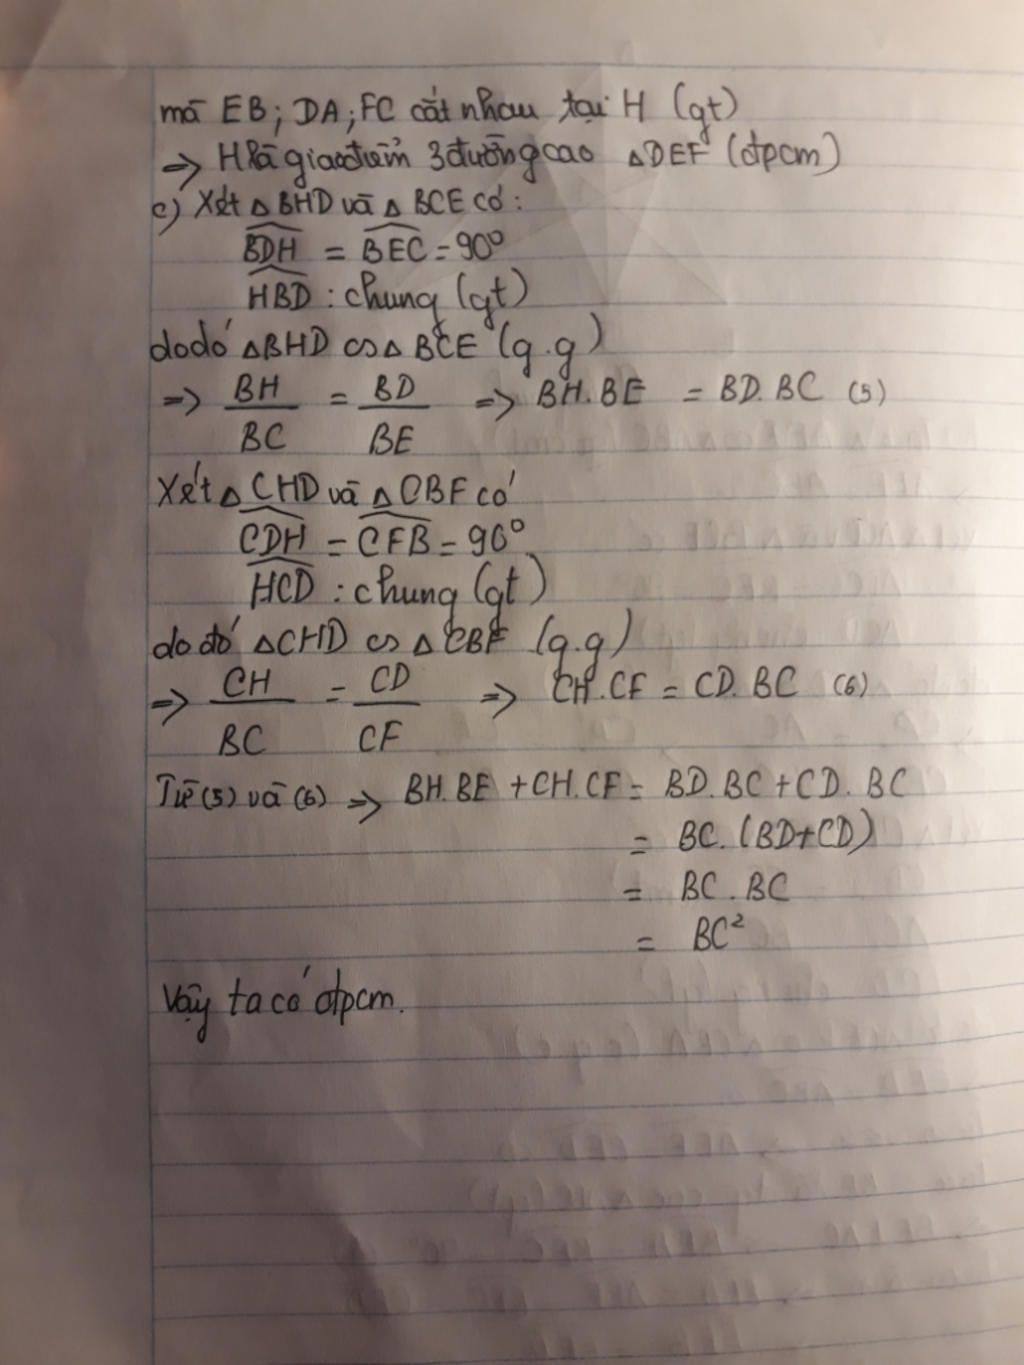 mà EB; DA; FC cắt nhau tại H (gt)
=> H là giao điểm 3 đường cao △DEF (đpcm)
c) Xét △BHD và △BCE có:
$\widehat{BDH}$ = $\widehat{BEC}$ = 90°
$\widehat{HBD}$ : chung (gt)
do đó △BHD ∽ △BCE (g.g)
=> $\frac{BH}{BC}$ = $\frac{BD}{BE}$ => BH.BE = BD.BC (5)
Xét △CHD và △CBF có
$\widehat{CDH}$ = $\widehat{CFB}$ = 90°
$\widehat{HCD}$ : chung (gt)
do đó △CHD ∽ △CBF (g.g)
=> $\frac{CH}{BC}$ = $\frac{CD}{CF}$ => CH.CF = CD.BC (6)
Từ (5) và (6) => BH.BE + CH.CF = BD.BC + CD.BC
= BC.(BD+CD)
= BC.BC
= BC²
Vậy ta có đpcm.